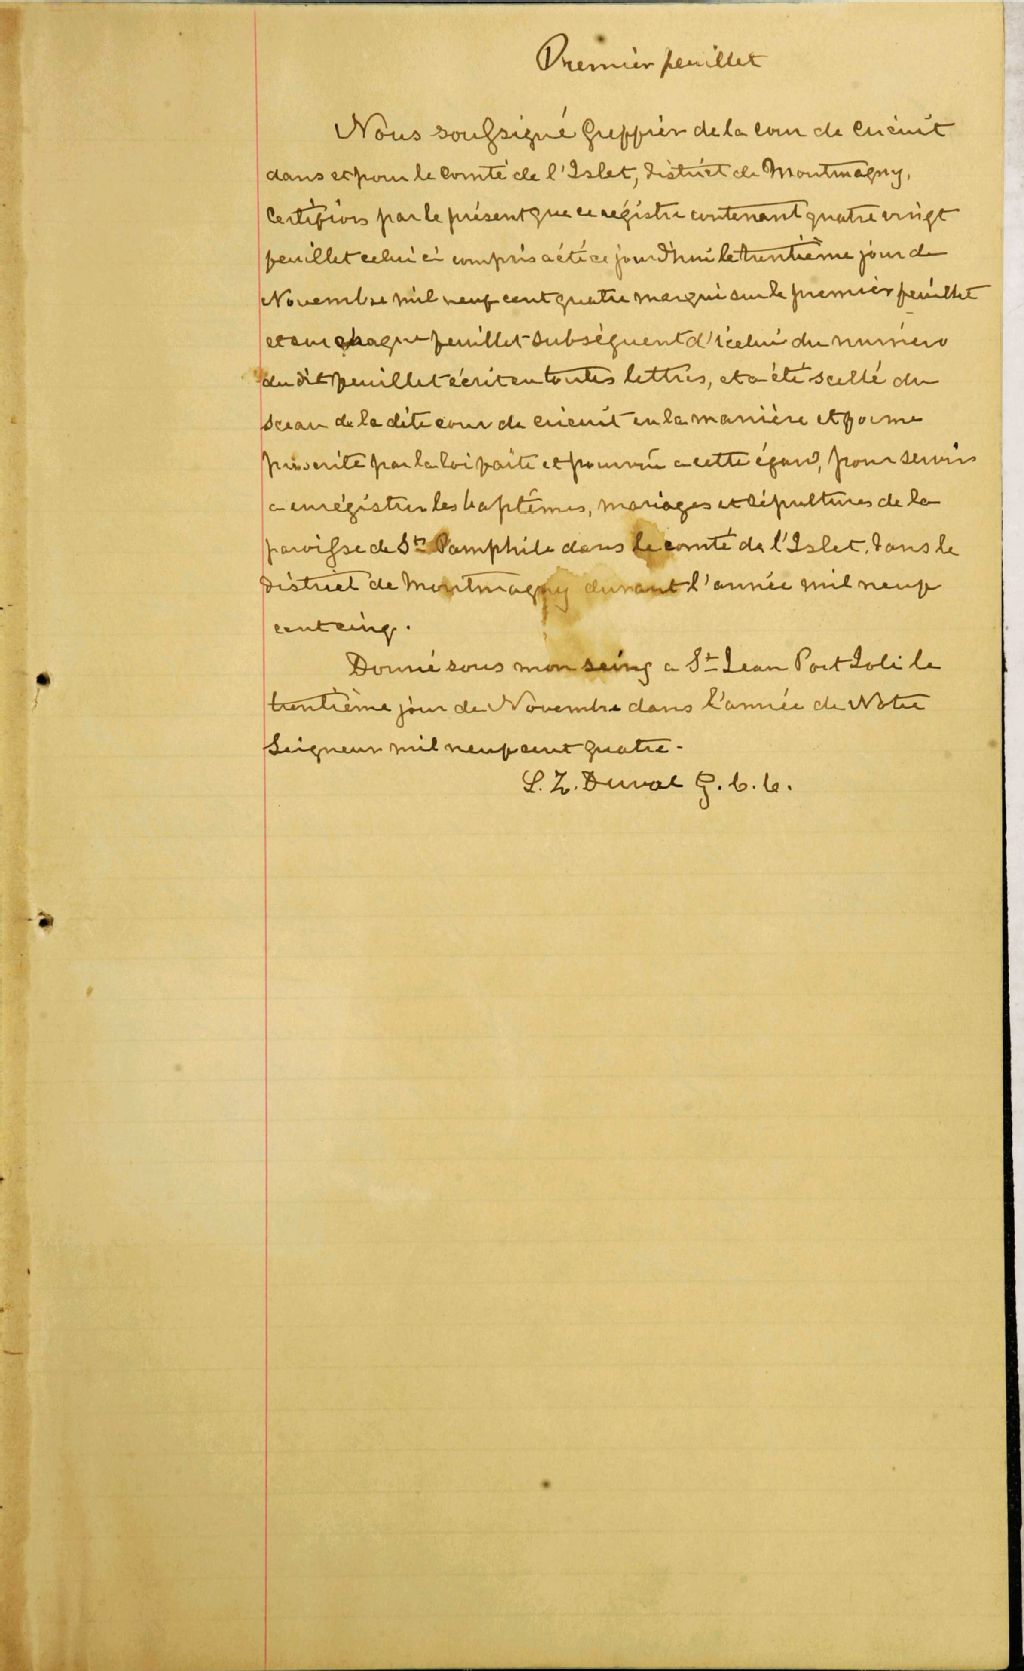 Premier feuillet
Nous soussigné Greffier de la Cour de Circuit
dans et pour le Comté de l'Islet, district de Montmagny,
Certifions par le présent que ce régistre contenant quatre vingt
feuillet celui ci compris a été ce jourd'hui le trentième jour de
Novembre mil neuf cent quatre marqué sur le premier feuillet
et sur chaque feuillet subséquent d'icelui du numéro
du dit feuillet écrit en toutes lettres, et a été scellé du
sceau de la dite cour de circuit en la manière et forme
prescrite par la loi faite et pourvue a cette égard, pour servir
a enrégistrer les baptêmes, mariages et sépultures de la
paroisse de St Pamphile dans le comté de l'Islet, dans le
district de Montmagny durant l'année mil neuf
cent cinq.
Donné sous mon seing a St Jean Port Joli le
trentième jour de Novembre dans l'année de Notre
Seigneur mil neuf cent quatre.
L. Z. Duval G. C. C.